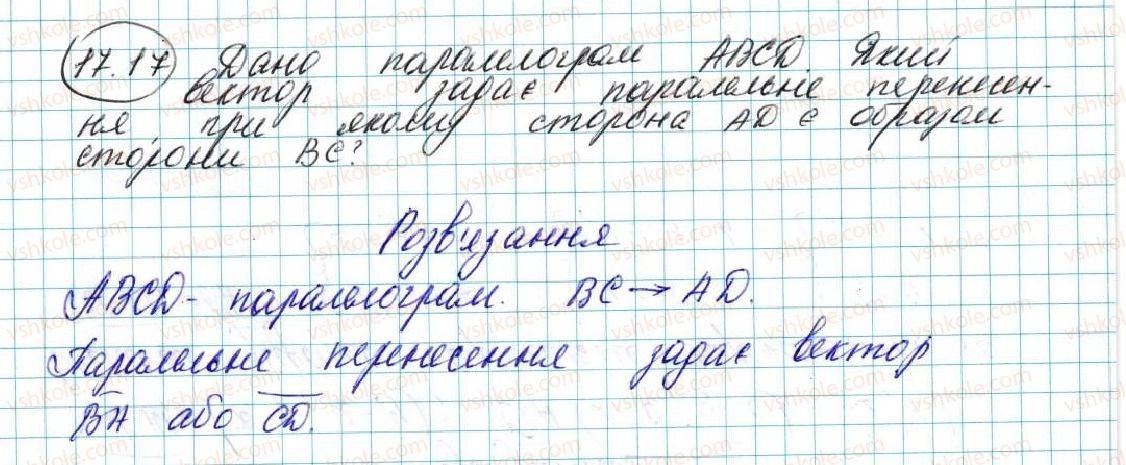 17.17 Дано паралелограм ABCD. Який
вектор задає паралельне перенесен-
ня, при якому сторона AD є образом
сторони BC?
Розв'язання
ABCD - паралелограм. BC → AD.
Паралельне перенесення задає вектор
BA або CD.